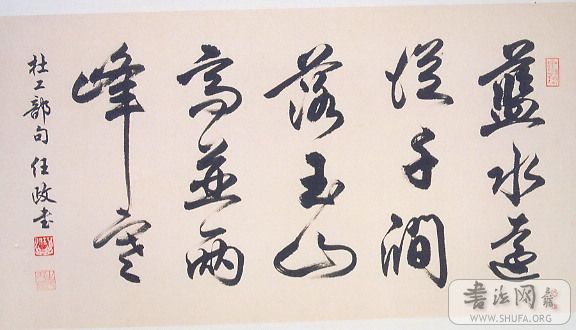 藍水遠
從千澗
落玉山
高並兩
峰寒
杜工部句任政書
書法网
WWW.SHUFA.ORG